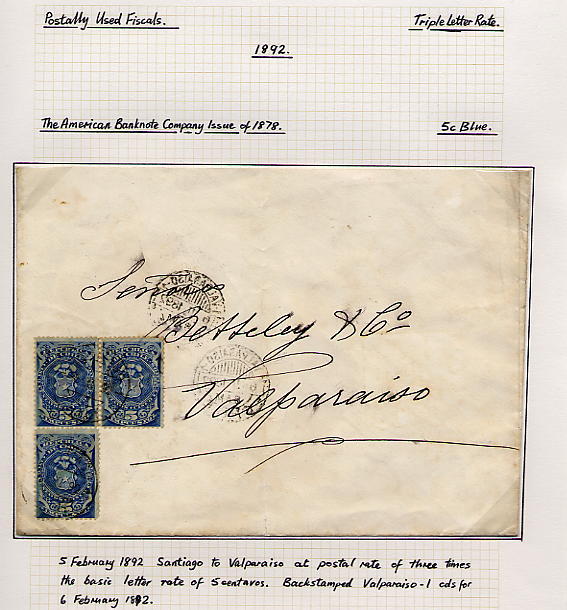 Postally Used Fiscals. Triple Letter Rate.
1892.
The American Banknote Company Issue of 1878. 5c Blue.
Señores
Betteley & Co
Valparaiso
5 February 1892 Santiago to Valparaiso at postal rate of three times
the basic letter rate of 5 centavos. Backstamped Valparaiso-1 cds for
6 February 1892.